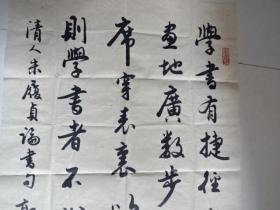 學書有捷徑
畫地廣數步
席穿表裏
則學書者不
清人朱履貞論書句